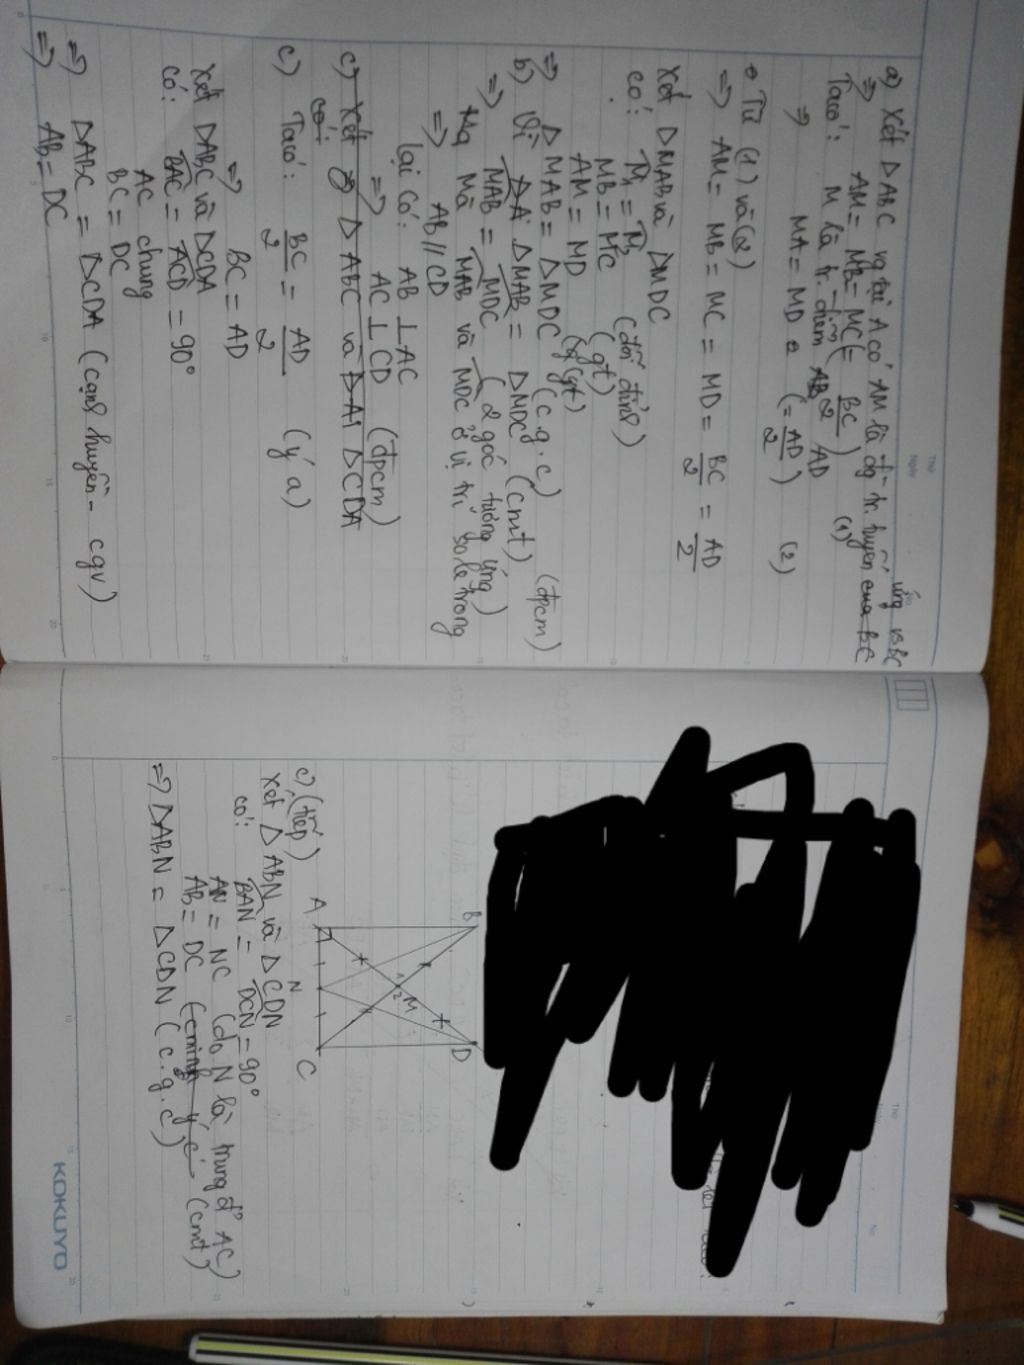 Thứ
Ngày
ứng vs BC
a) Xét ΔABC vg tại A có AM là đg tr. huyền của BC
⇒ AM = MB = MC (= BC/2) (1)
Ta có: M là tr. điểm AB AD
⇒ MA = MD (= AD/2) (2)
Từ (1) và (2)
⇒ AM = MB = MC = MD = BC/2 = AD/2
Xét ΔMAB và ΔMDC
có: M̂1 = M̂2 (đối đỉnh)
MB = MC (gt)
AM = MD (gt)
⇒ ΔMAB = ΔMDC (c.g.c) (đpcm)
b) Vì ΔA ΔMAB = ΔMDC (cmt)
⇒ MAB = MDC (2 góc tương ứng)
Mà Mà MAB và MDC ở vị trí so le trong
⇒ AB // CD
lại có: AB ⊥ AC
⇒ AC ⊥ CD (đpcm)
c) Xét ΔABC và ΔA ΔCDA
có:
c) Ta có: BC/2 = AD/2 (ý a)
⇒ BC = AD
Xét ΔABC và ΔCDA
có: BAC = ACD = 90°
AC chung
BC = DC
⇒ ΔABC = ΔCDA (cạnh huyền - cgv)
⇒ AB = DC
Thứ
No
B
D
1
2
M
A
N
C
c) (tiếp)
Xét ΔABN và ΔCDN
có: BAN = DCN = 90°
AN = NC (do N là trung đ' AC)
AB = DC (cming ý c (cmt)
⇒ ΔABN = ΔCDN (c.g.c)
KOKUYO